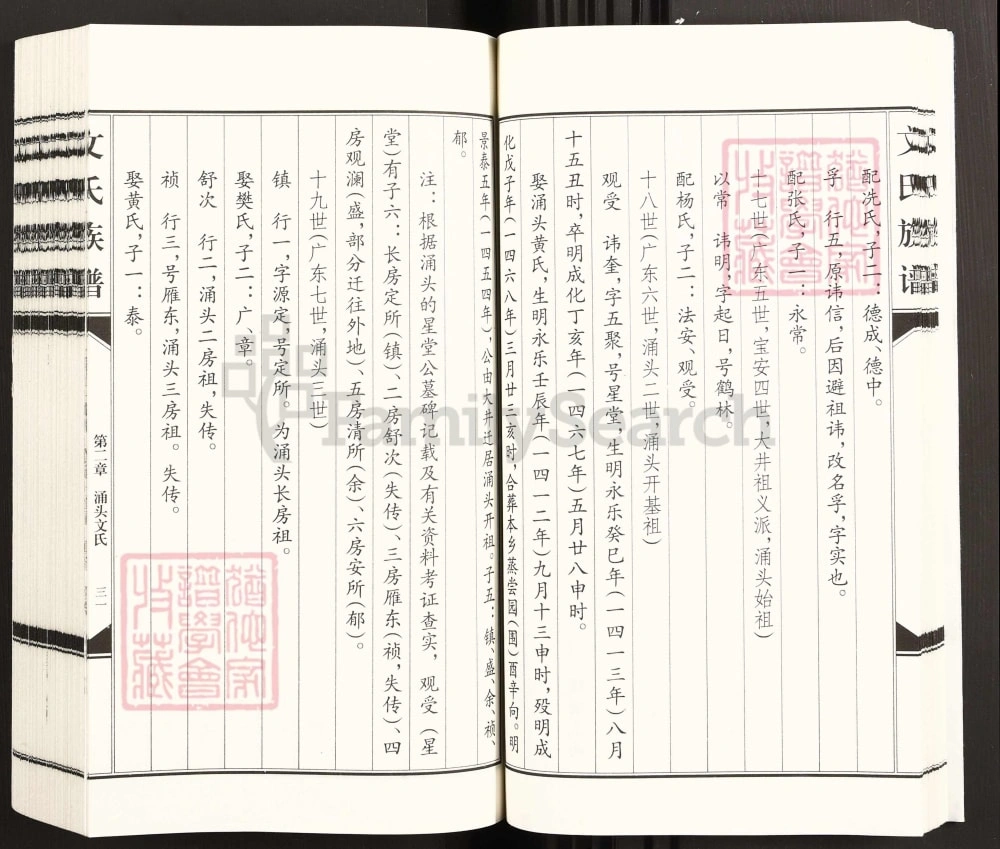 文氏族谱
配冼氏，子二：德成、德中。
孚　行五，原讳信，后因避祖讳，改名孚，字实也。
配张氏，子一：永常。
十七世（广东五世，宝安四世，大井祖义派，涌头始祖）
以常　讳明，字起日，号鹤林。
配杨氏，子二：法安、观受。
十八世（广东六世，涌头二世，涌头开基祖）
观受　讳奎，字五聚，号星堂，生明永乐癸巳年（一四一三年）八月
十五丑时，卒明成化丁亥年（一四六七年）五月廿八申时。
娶涌头黄氏，生明永乐壬辰年（一四一二年）九月十三申时，殁明成
化戊子年（一四六八年）三月廿三亥时，合葬本乡蒸尝园（围）酉辛向。明
景泰五年（一四五四年），公由大井迁居涌头开祖。子五：镇、盛、余、祯、
郁。
注：根据涌头的星堂公墓碑记载及有关资料考证查实，观受（星
堂）有子六：长房定所（镇）、二房舒次（失传）、三房雁东（祯，失传）、四
房观澜（盛，部分迁往外地）、五房清所（余）、六房安所（郁）。
十九世（广东七世，涌头三世）
镇　行一，字源定，号定所。为涌头长房祖。
娶樊氏，子二：广、章。
舒次　行二，涌头二房祖，失传。
祯　行三，号雁东，涌头三房祖。失传。
娶黄氏，子一：泰。
文氏族谱
第二章　涌头文氏
三一
FamilySearch